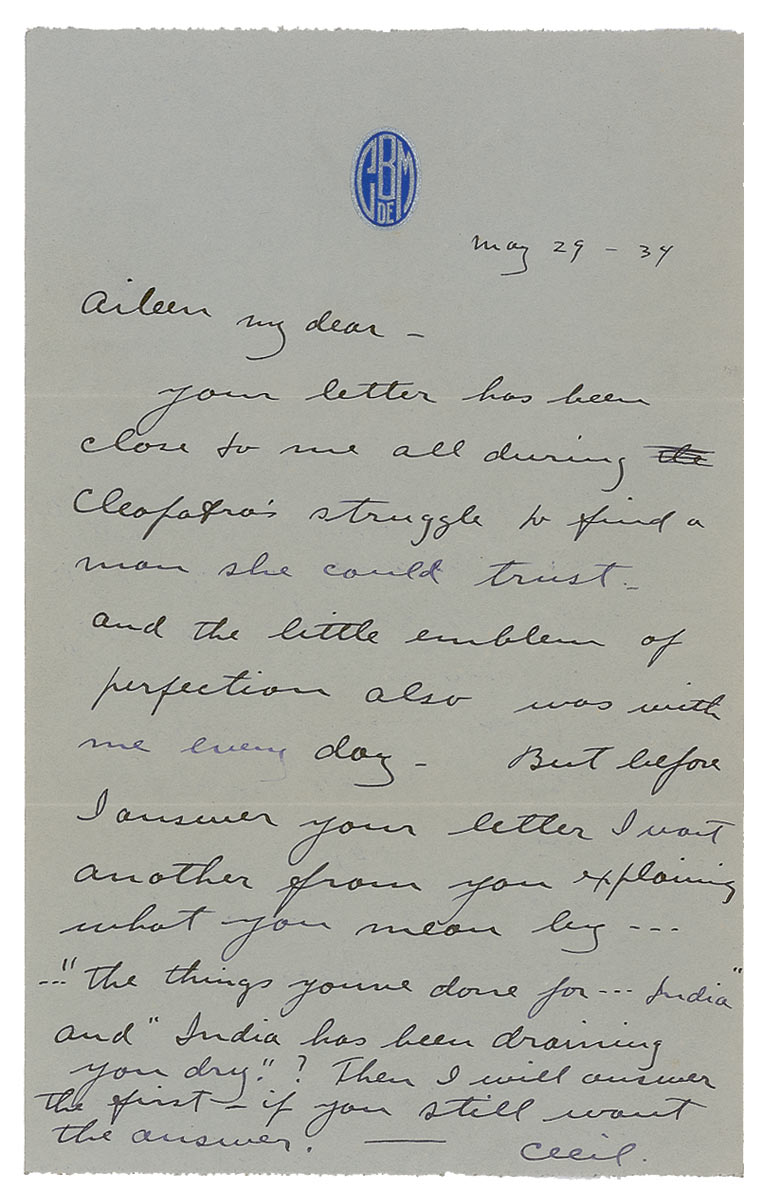 CBM
DE
May 29 - 34
Aileen my dear -
your letter has been
close to me all during the
Cleopatra's struggle to find a
man she could trust -
and the little emblem of
perfection also was with
me every day - But before
I answer your letter I want
another from you explaining
what you mean by ---
--" the things youve done for --- India"
and " India has been draining
you dry." ? Then I will answer
the first - if you still want
the answer. —— Cecil.